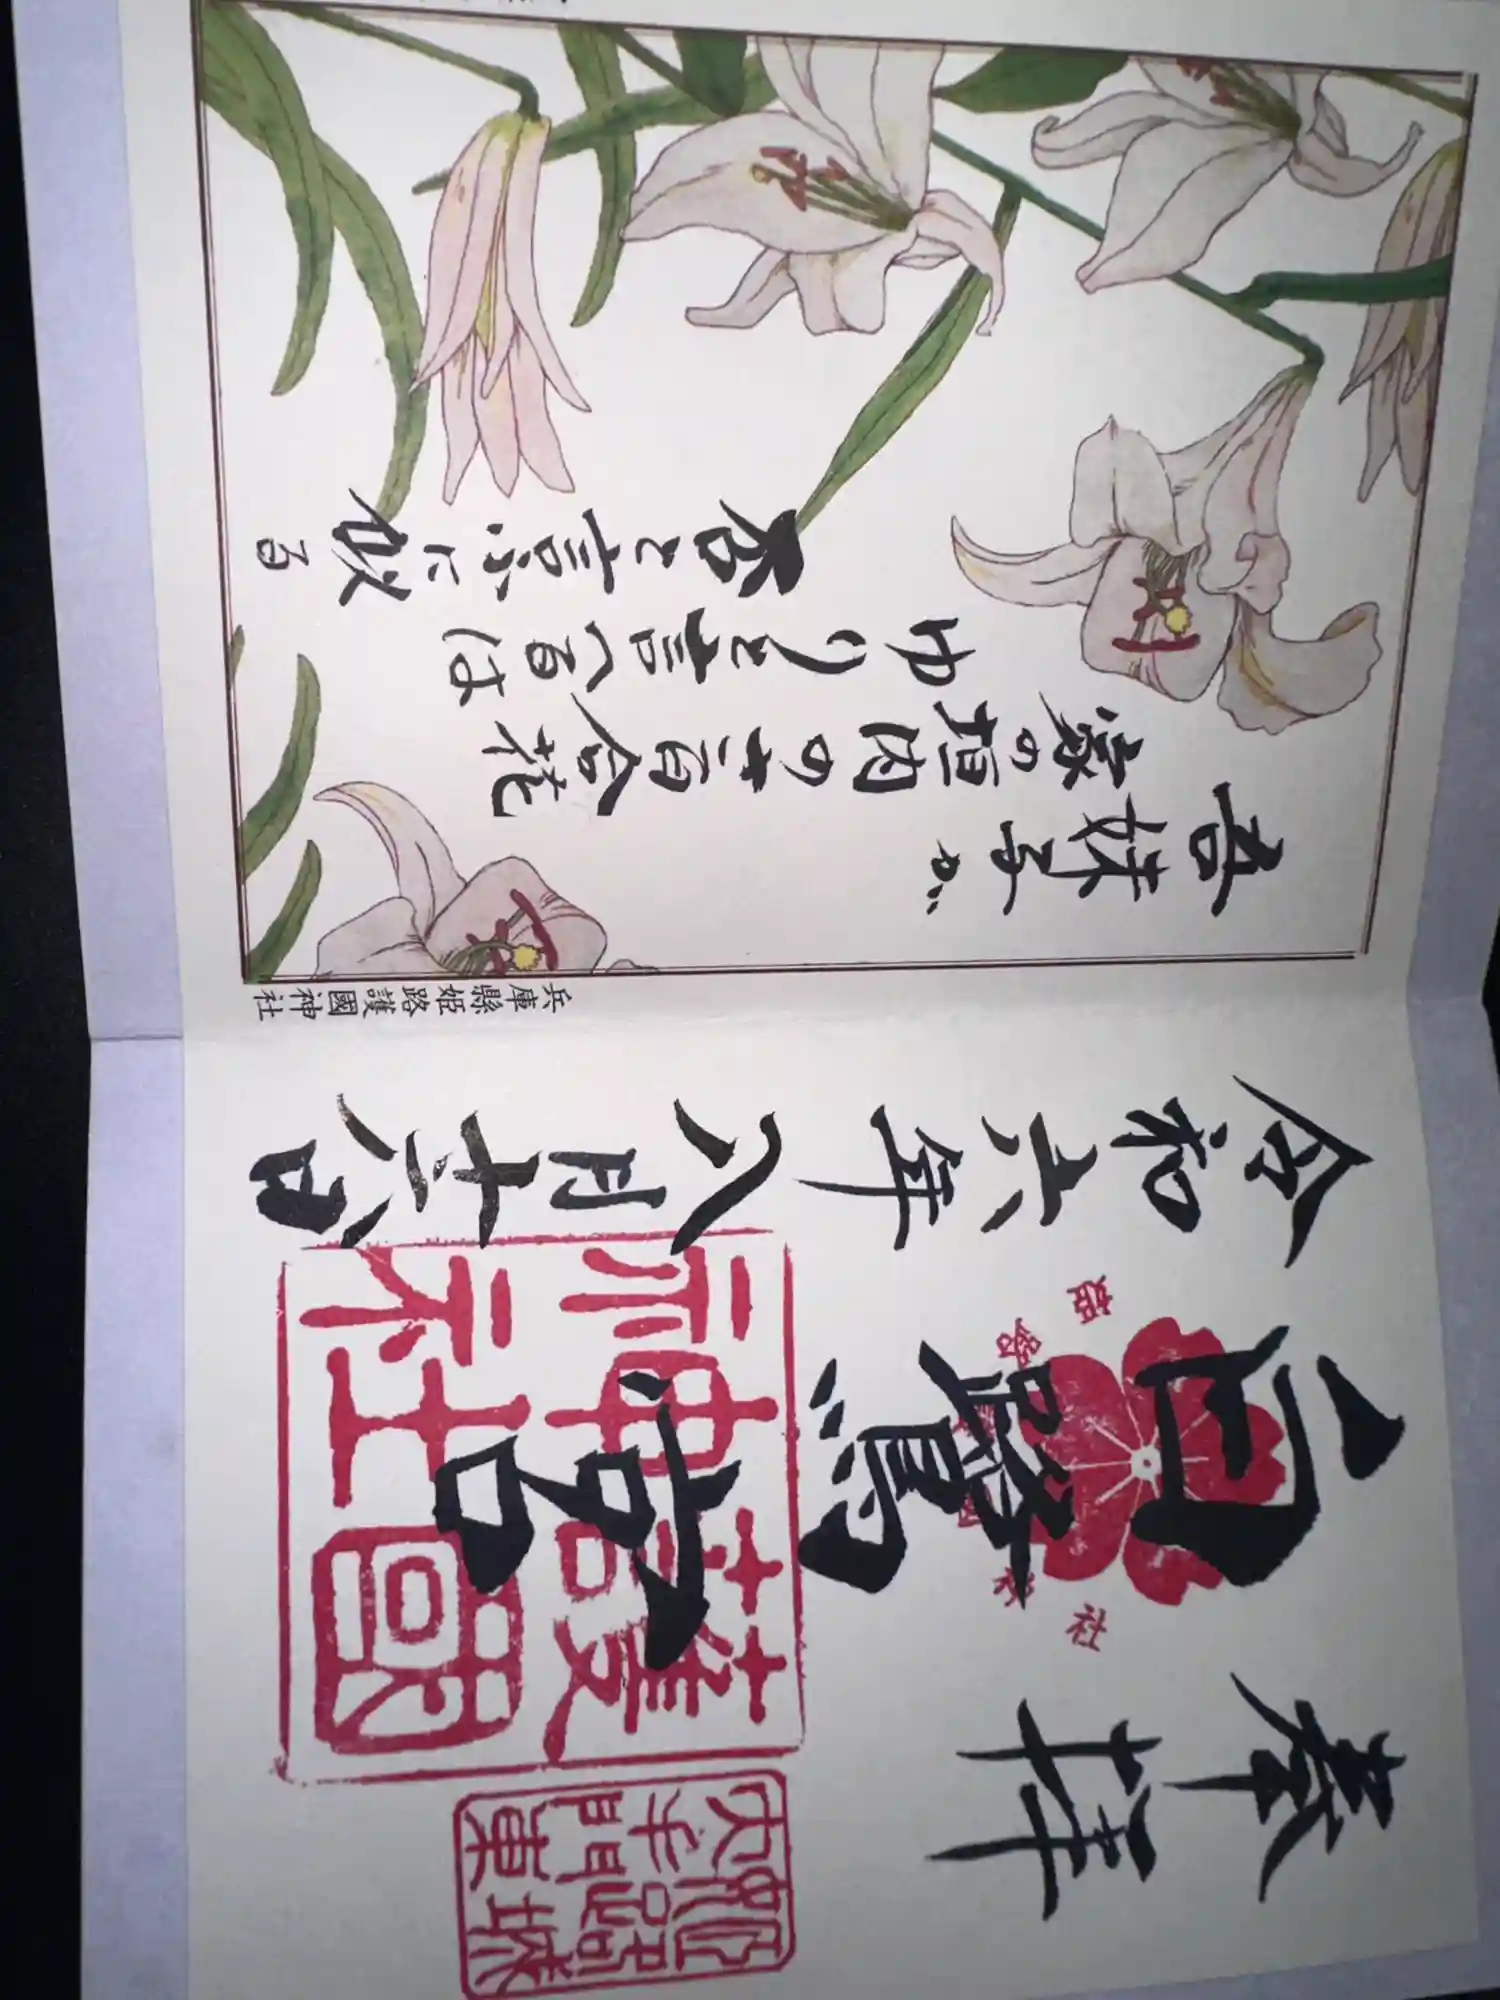 奉拝
白鷺宮
令和六年八月十六日
護國
神社
兵庫縣姫路護國神社
吾妹子が
家の垣内のさ百合花
ゆりと言へるは
否と言ふに似る